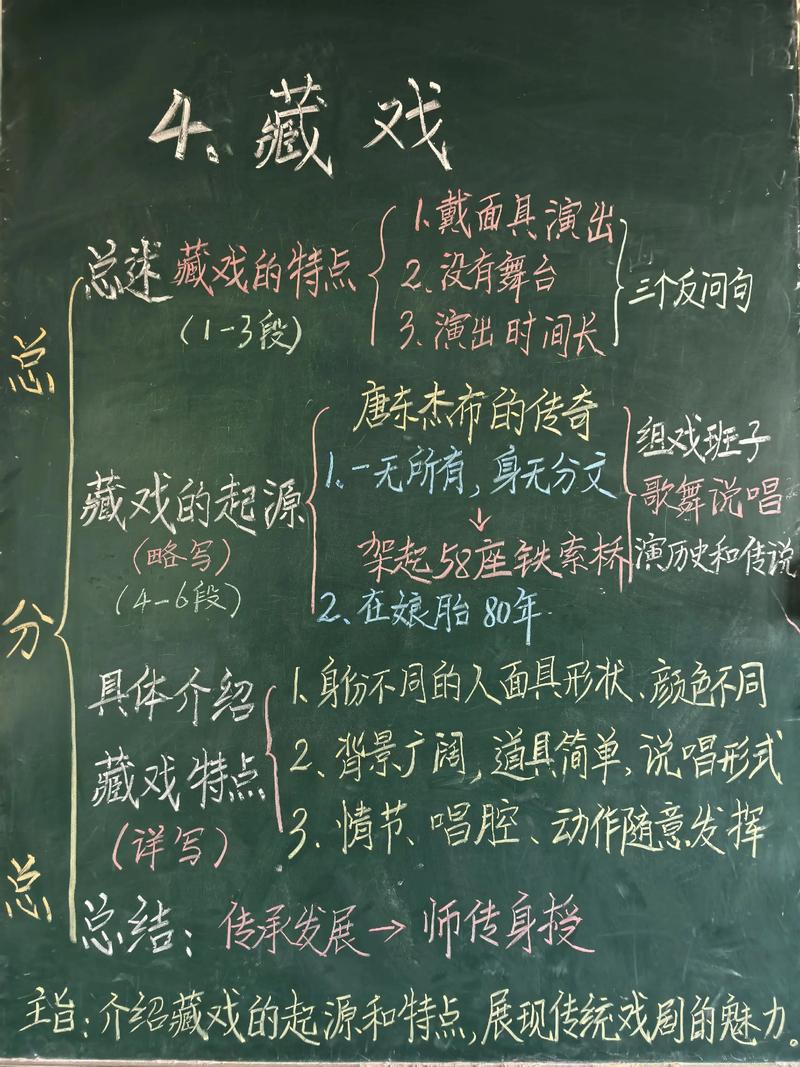 4、藏戏
总
分
总
总述藏戏的特点
(1-3段)
1.戴面具演出
2、没有舞台
3、演出时间长
三个反问句
藏戏的起源
(略写)
(4-6段)
唐东杰布的传奇
1、一无所有,身无分文
↓
架起58座铁索桥
2、在娘胎80年
组戏班子
歌舞说唱
演历史和传说
具体介绍
藏戏特点
(详写)
1、身份不同的人面具形状、颜色不同
2、背景广阔,道具简单,说唱形式
3、情节、唱腔、动作随意发挥
总结:传承发展→师传身授
主旨:介绍藏戏的起源和特点,展现传统戏剧的魅力。